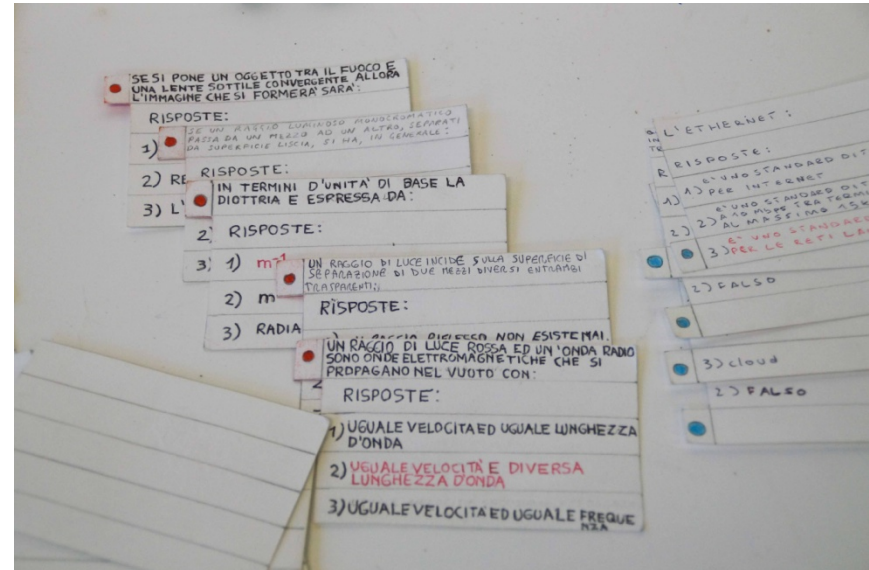 SE SI PONE UN OGGETTO TRA IL FUOCO E
UNA LENTE SOTTILE CONVERGENTE ALLORA
L'IMMAGINE CHE SI FORMERA' SARA':
RISPOSTE:
1)
SE UN RAGGIO LUMINOSO MONOCROMATICO
PASSA DA UN MEZZO AD UN ALTRO, SEPARATI
DA SUPERFICIE LISCIA, SI HA, IN GENERALE:
2) RE
RISPOSTE:
3) L'
IN TERMINI D'UNITA' DI BASE LA
DIOTTRIA E ESPRESSA DA:
2
RISPOSTE:
3)
1) m-1
2) m
3) RADIA
UN RAGGIO DI LUCE INCIDE SULLA SUPERFICIE DI
SEPARAZIONE DI DUE MEZZI DIVERSI ENTRAMBI
TRASPARENTI:
RISPOSTE:
NON ESISTE MAI.
UN RAGGIO DI LUCE ROSSA ED UN'ONDA RADIO
SONO ONDE ELETTROMAGNETICHE CHE SI
PROPAGANO NEL VUOTO CON:
RISPOSTE:
1) UGUALE VELOCITA ED UGUALE LUNGHEZZA
D'ONDA
2) UGUALE VELOCITÀ E DIVERSA
LUNGHEZZA D'ONDA
3) UGUALE VELOCITA ED UGUALE FREQUE
NZA
L'ETHERNET:
RISPOSTE:
E' UNO STANDARD DI T
1) PER INTERNET
E' UNO STANDARD DI T
2) A 10 MBPS TRA TERMI
AL MASSIMO
E' UNO STANDARD
3) PER LE RETI LAN
2) FALSO
3) cloud
2) FALSO